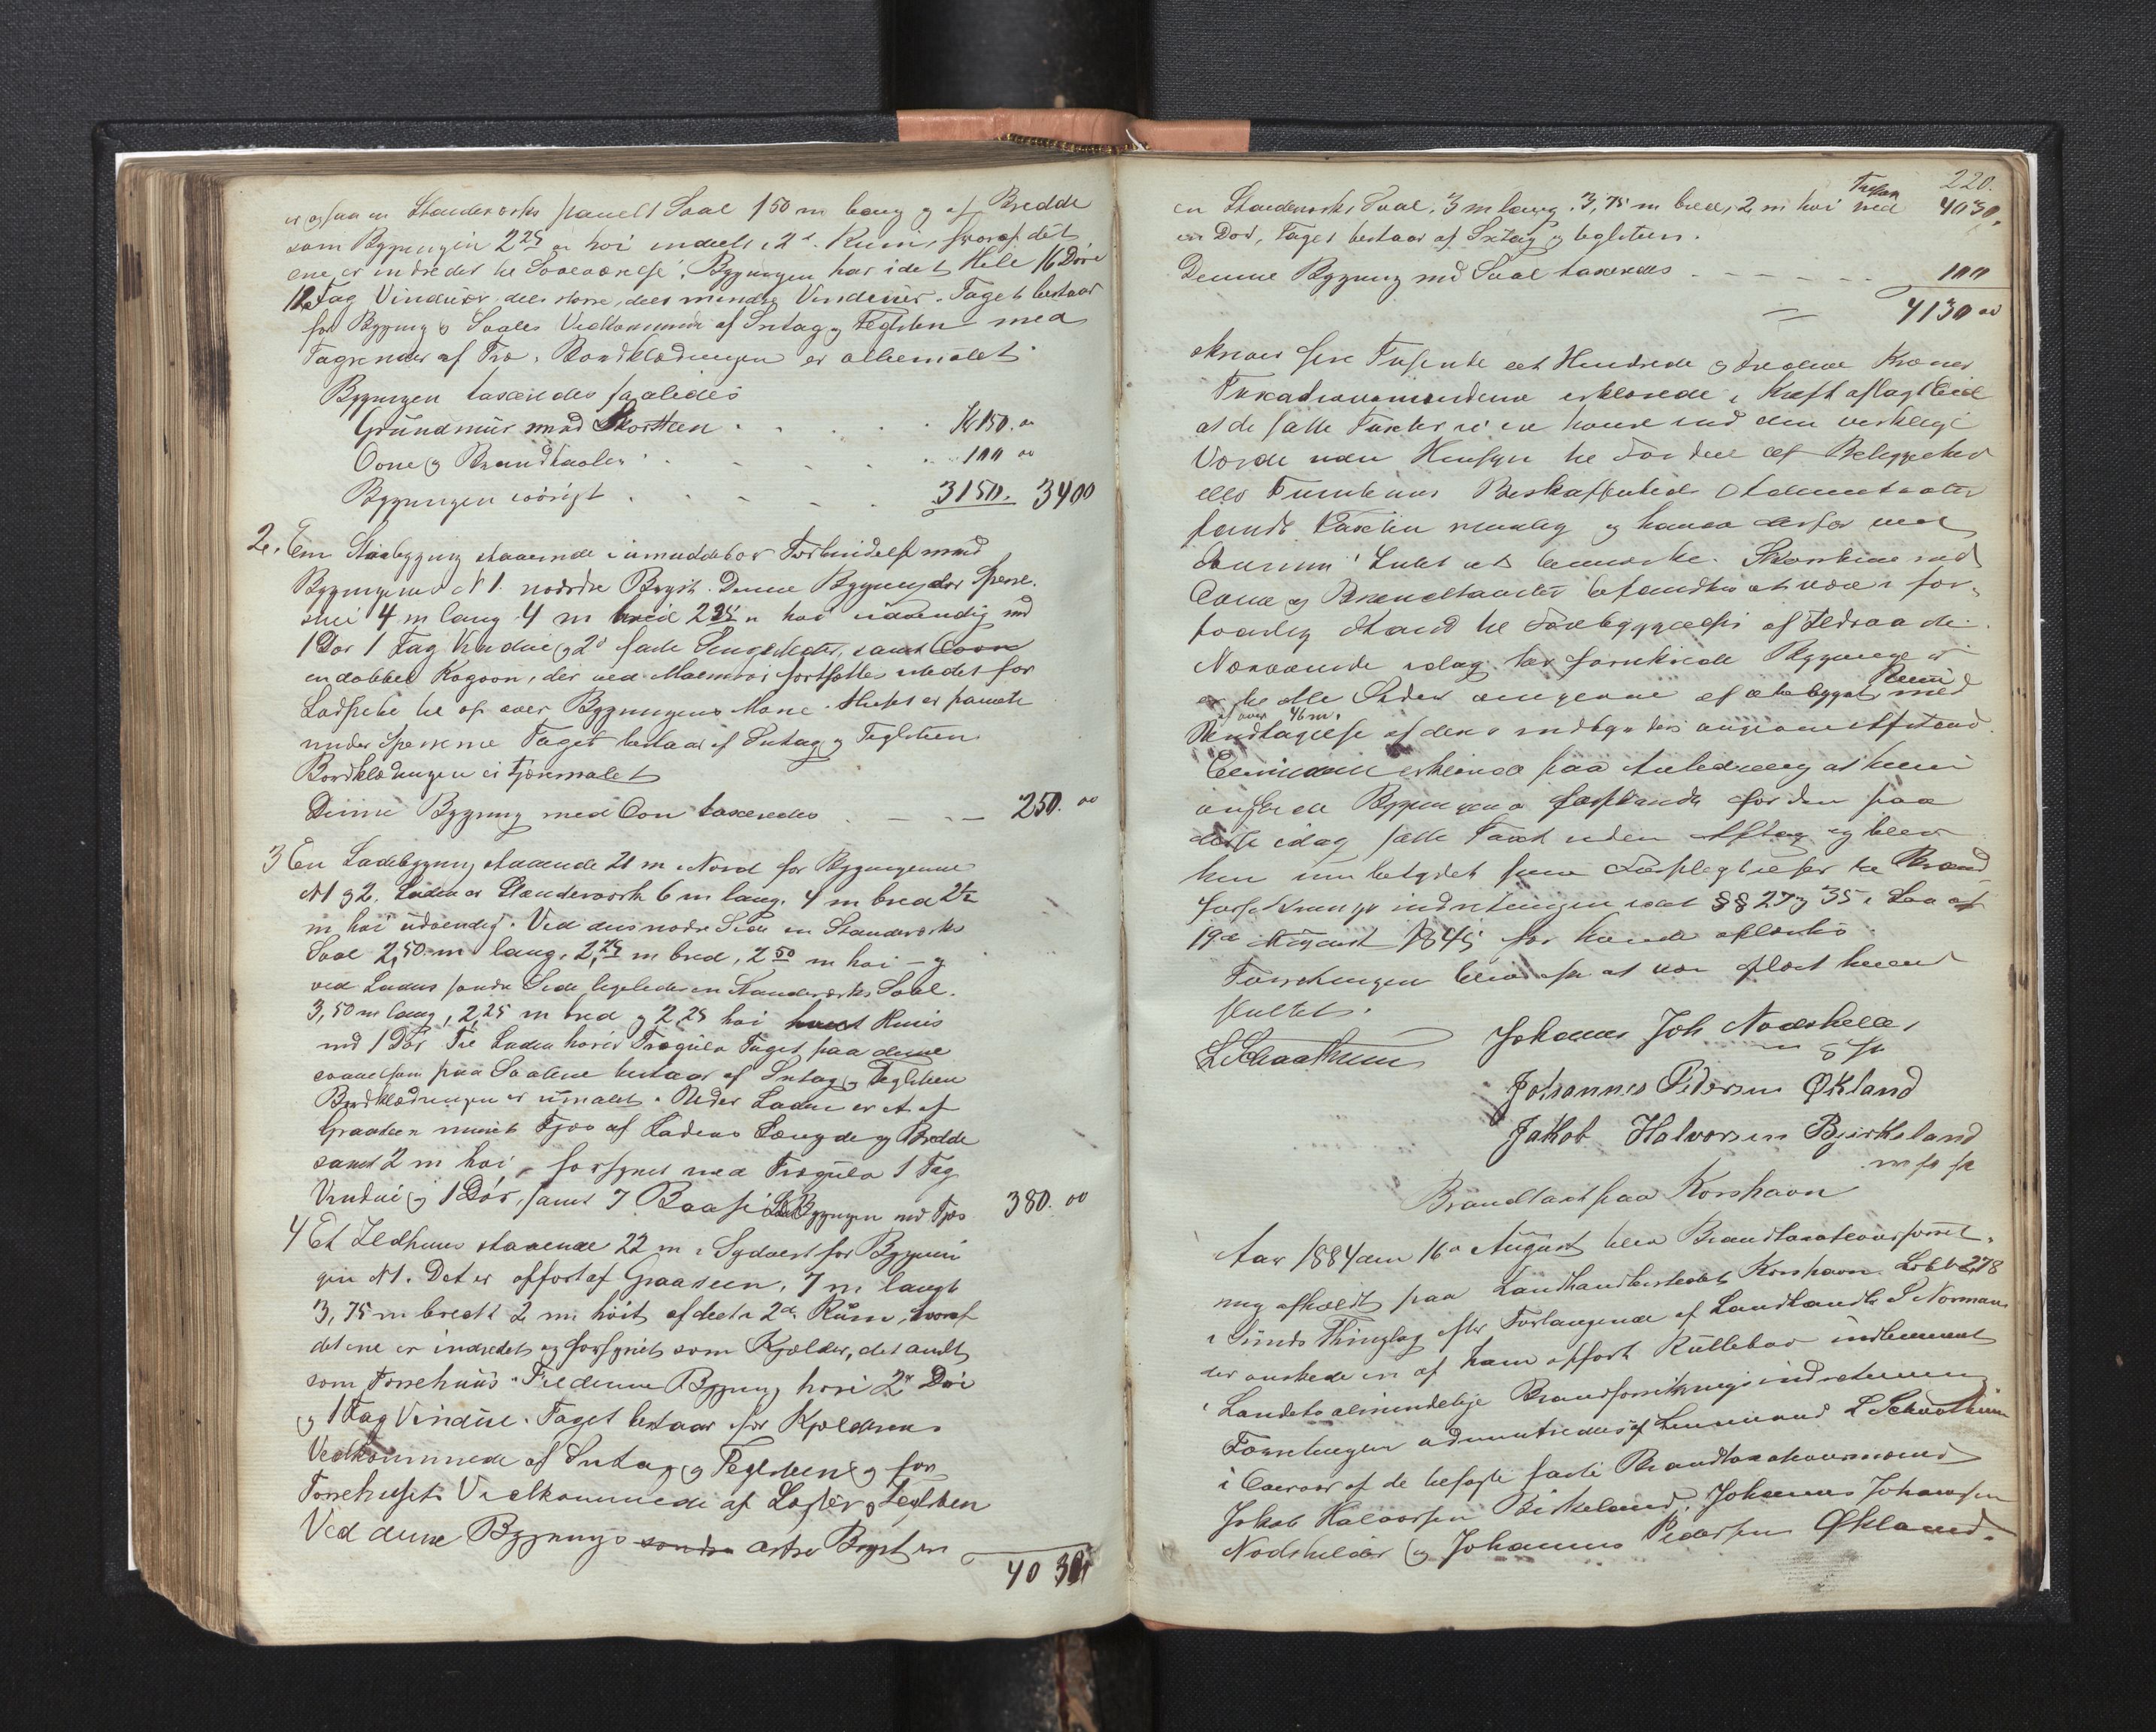 er ogsaa en Standværks panelt Sval 1 50 m lang og af Bredde
som Bygningen 2 25 m høi indeelt i 2de Rum, hvoraf det
ene er indredet til Soveværelse. Bygningen har i det Hele 16 Døre
12 Fag Vinduer, dels større, dels mindre Vinduer. Taget bestaar
for Bygning og Svales Vedkommende af Sutag og Teglsten med
Tagrender af Træ. Bordklædningen er oliemalet.
Bygningen taxeredes saaledes
Grundmur med Skorsten Kr 150. 00
Ovne og Brandtavler 100 00
Bygningen iøvrigt 3150. 3400
2. En Stuebygning staaende i umiddelbar Forbindelse med
Bygningens N 1. nordre Bryst. Denne Bygning der Sperre-
stue 4 m lang 4 m breid 2 25 m høi udvendig med
1 Dør 1 Fag Vindue og 2de faste Sengesteder, samt Ovn
en dobbel Kogovn, der ved Rør fortsættes istedet for
under Sperrerne Taget bestaar af Sutag og Teglsten
Bordklædningen er tjæremalet
Denne Bygning med Ovn taxeredes 250. 00
3 En Ladebygning staaende 21 m i Nord for Bygningerne
N 1 og 2. Laden er Standværk 6 m lang. 4 m bred 2½
m høi udvendig. Ved dens nordre Side en Standværks
Sval 2,50 m lang, 2,25 m bred, 2 50 m høi – og
ved Ladens søndre Side ligeledes en Standværks Sval.
3,50 m lang, 2,25 m bred og 2,25 høi
med 1 Dør Til Laden hører Trægulv Taget paa denne
saavelsom paa Svalene bestaar af Sutag og Teglsten
Bordklædningen er umalet. Under Laden er et af
Graasten muret Fjøs af Ladens Længde og Bredde
samt 2 m høi, forsynet med Trægulv 1 Fag
Vindue og 1 Dør, samt 7 Baase Bygningen med Fjøs 380. 00
4 Et Ildhuus staaende 22 m i Sydvest for Bygnin
gen N 1. Det er opført af Graasteen, 7 m langt
3,75 m bredt 2 m høit afdeelt i 2de Rum, hvoraf
det ene er indredet og forsynet som Kjælder, det andet
som Tørrehuus. Til denne Bygning hører 2de Døre
og 1 Fag Vindue. Taget bestaar for Kjælderens
Vedkommende af Sutag og Teglsteen og for
Tørrehusets Vedkommende af Lægter og Teglsten
Ved denne Bygnings søndre østre Bryst er
40 30
220.
en Standværks Sval, 3 m lang, 3,75 m bred, 2 m høi med 4030.
en Dør, Taget bestaar af Sutag og teglsteen.
Denne Bygning med Sval taxeredes 100
4130 00
skriver fire Tusende eet Hundrede og tredive Kroner
Taxationsmændene erklærede i Kraft aflagt Eed
at de satte Taxter ei ere høiere end den virkelige
Værdi uden Hensyn til Fordeel af Beliggenhed
eller Tomternes Beskaffenhed. Administrator
fandt Taxten rimelig og havde derfor ved
Summen Intet at bemærke. Skorstene med
Ovne og Brandtavler befandtes at være i for-
svarlig Stand til Forebyggelse af Ildsvaade.
Nærværende idag forsikrede Bygninger
er til alle Sider omgivne af ubebygget Rum med
af over 46 m.
Undtagelse af den indbyrdes angivne Afstand.
Eieren erklærede paa Anledning at
ansee Bygningerne forsikrede for den paa
disse idag satte Taxt uden Aftag og blev
ham um betydet sine Forpligtelser til Brand-
forsikringsindretningen efter §§ 27 og 35 i Lov af
19de August 1845 for hvad oplæstes.
Forretningen blev efter at være oplæst hermed
sluttet.
L Schaathun Johannes Joh Nodskeller
m f p
Johannes Pedersen Økland
Jakob Halvorsen Bjirkeland
m f p
Brandtaxt paa Korshavn
Aar 1884 den 16de August blev Brandtaxationsforret-
ning afholdt paa Landhandlerstedet Korshavn Lb N 278
i Sunds Thinglag efter Forlangende af Landhandler P Normann
der ønskede en af ham opført Rullebod indlemmet
i Landets almindelige Brandforsikringsindretning
Forretningen administreredes af Lensmand L Schaathun
i Overvær af de befaste faste Brandtaxationsmænd
Jakob Halvorsen Birkeland, Johannes Johannesen
Nodskelder og Johannes Pedersen Økland.